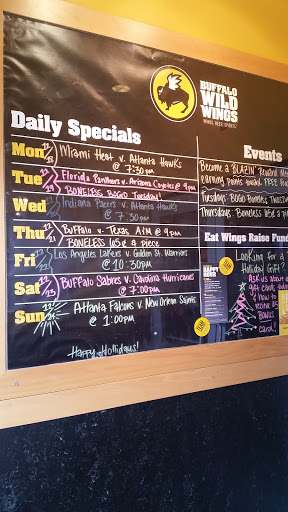 BUFFALO
WILD
WINGS
WINGS. BEER. SPORTS.
Daily Specials
Mon 12/18 Miami Heat v. Atlanta Hawks
@ 7:30pm
Tue 12/19 Florida Panthers v. Arizona Coyotes @ 9pm
BONELESS BOGO Tuesday!
Wed 12/20 Indiana Pacers v. Atlanta Hawks
@ 7:30pm
Thu 12/21 Buffalo v. Texas A&M @ 9pm
BONELESS 65¢ a piece
Fri 12/22 Los Angeles Lakers v. Golden St. Warriors
@ 10:30pm
Sat 12/23 Buffalo Sabres v. Carolina Hurricanes
@ 7:00pm
Sun 12/24 Atlanta Falcons v. New Orlean Saints
@ 1:00pm
Happy Hollidays!
Events
Become a BLAZIN' Rewards Mem
Earning Points toward FREE Foo
Tuesdays: BOGO Boneless
Thursdays: Boneless 65¢ a
Eat Wings Raise Fund
Looking for a
Holiday Gift?
Ask us about
gift cards
& how to
receive
Bonus
card!